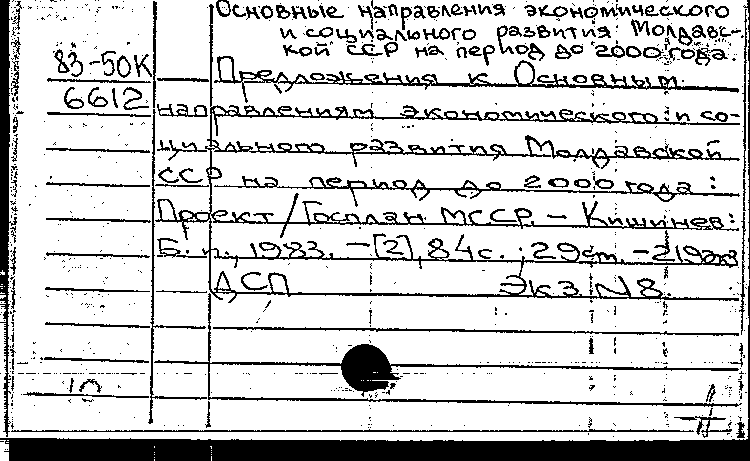 Основные направления экономического
и социального развития Молдавс-
кой ССР на период до 2000 года.
83-50К Предложения к Основным
6612 направлениям экономического и со-
циального развития Молдавской
ССР на период до 2000 года:
Проект/Госплан МССР. - Кишинев:
Б. п., 1983. - [2], 84 с.; 29 см. - 219 экз
ДСП Экз N 8